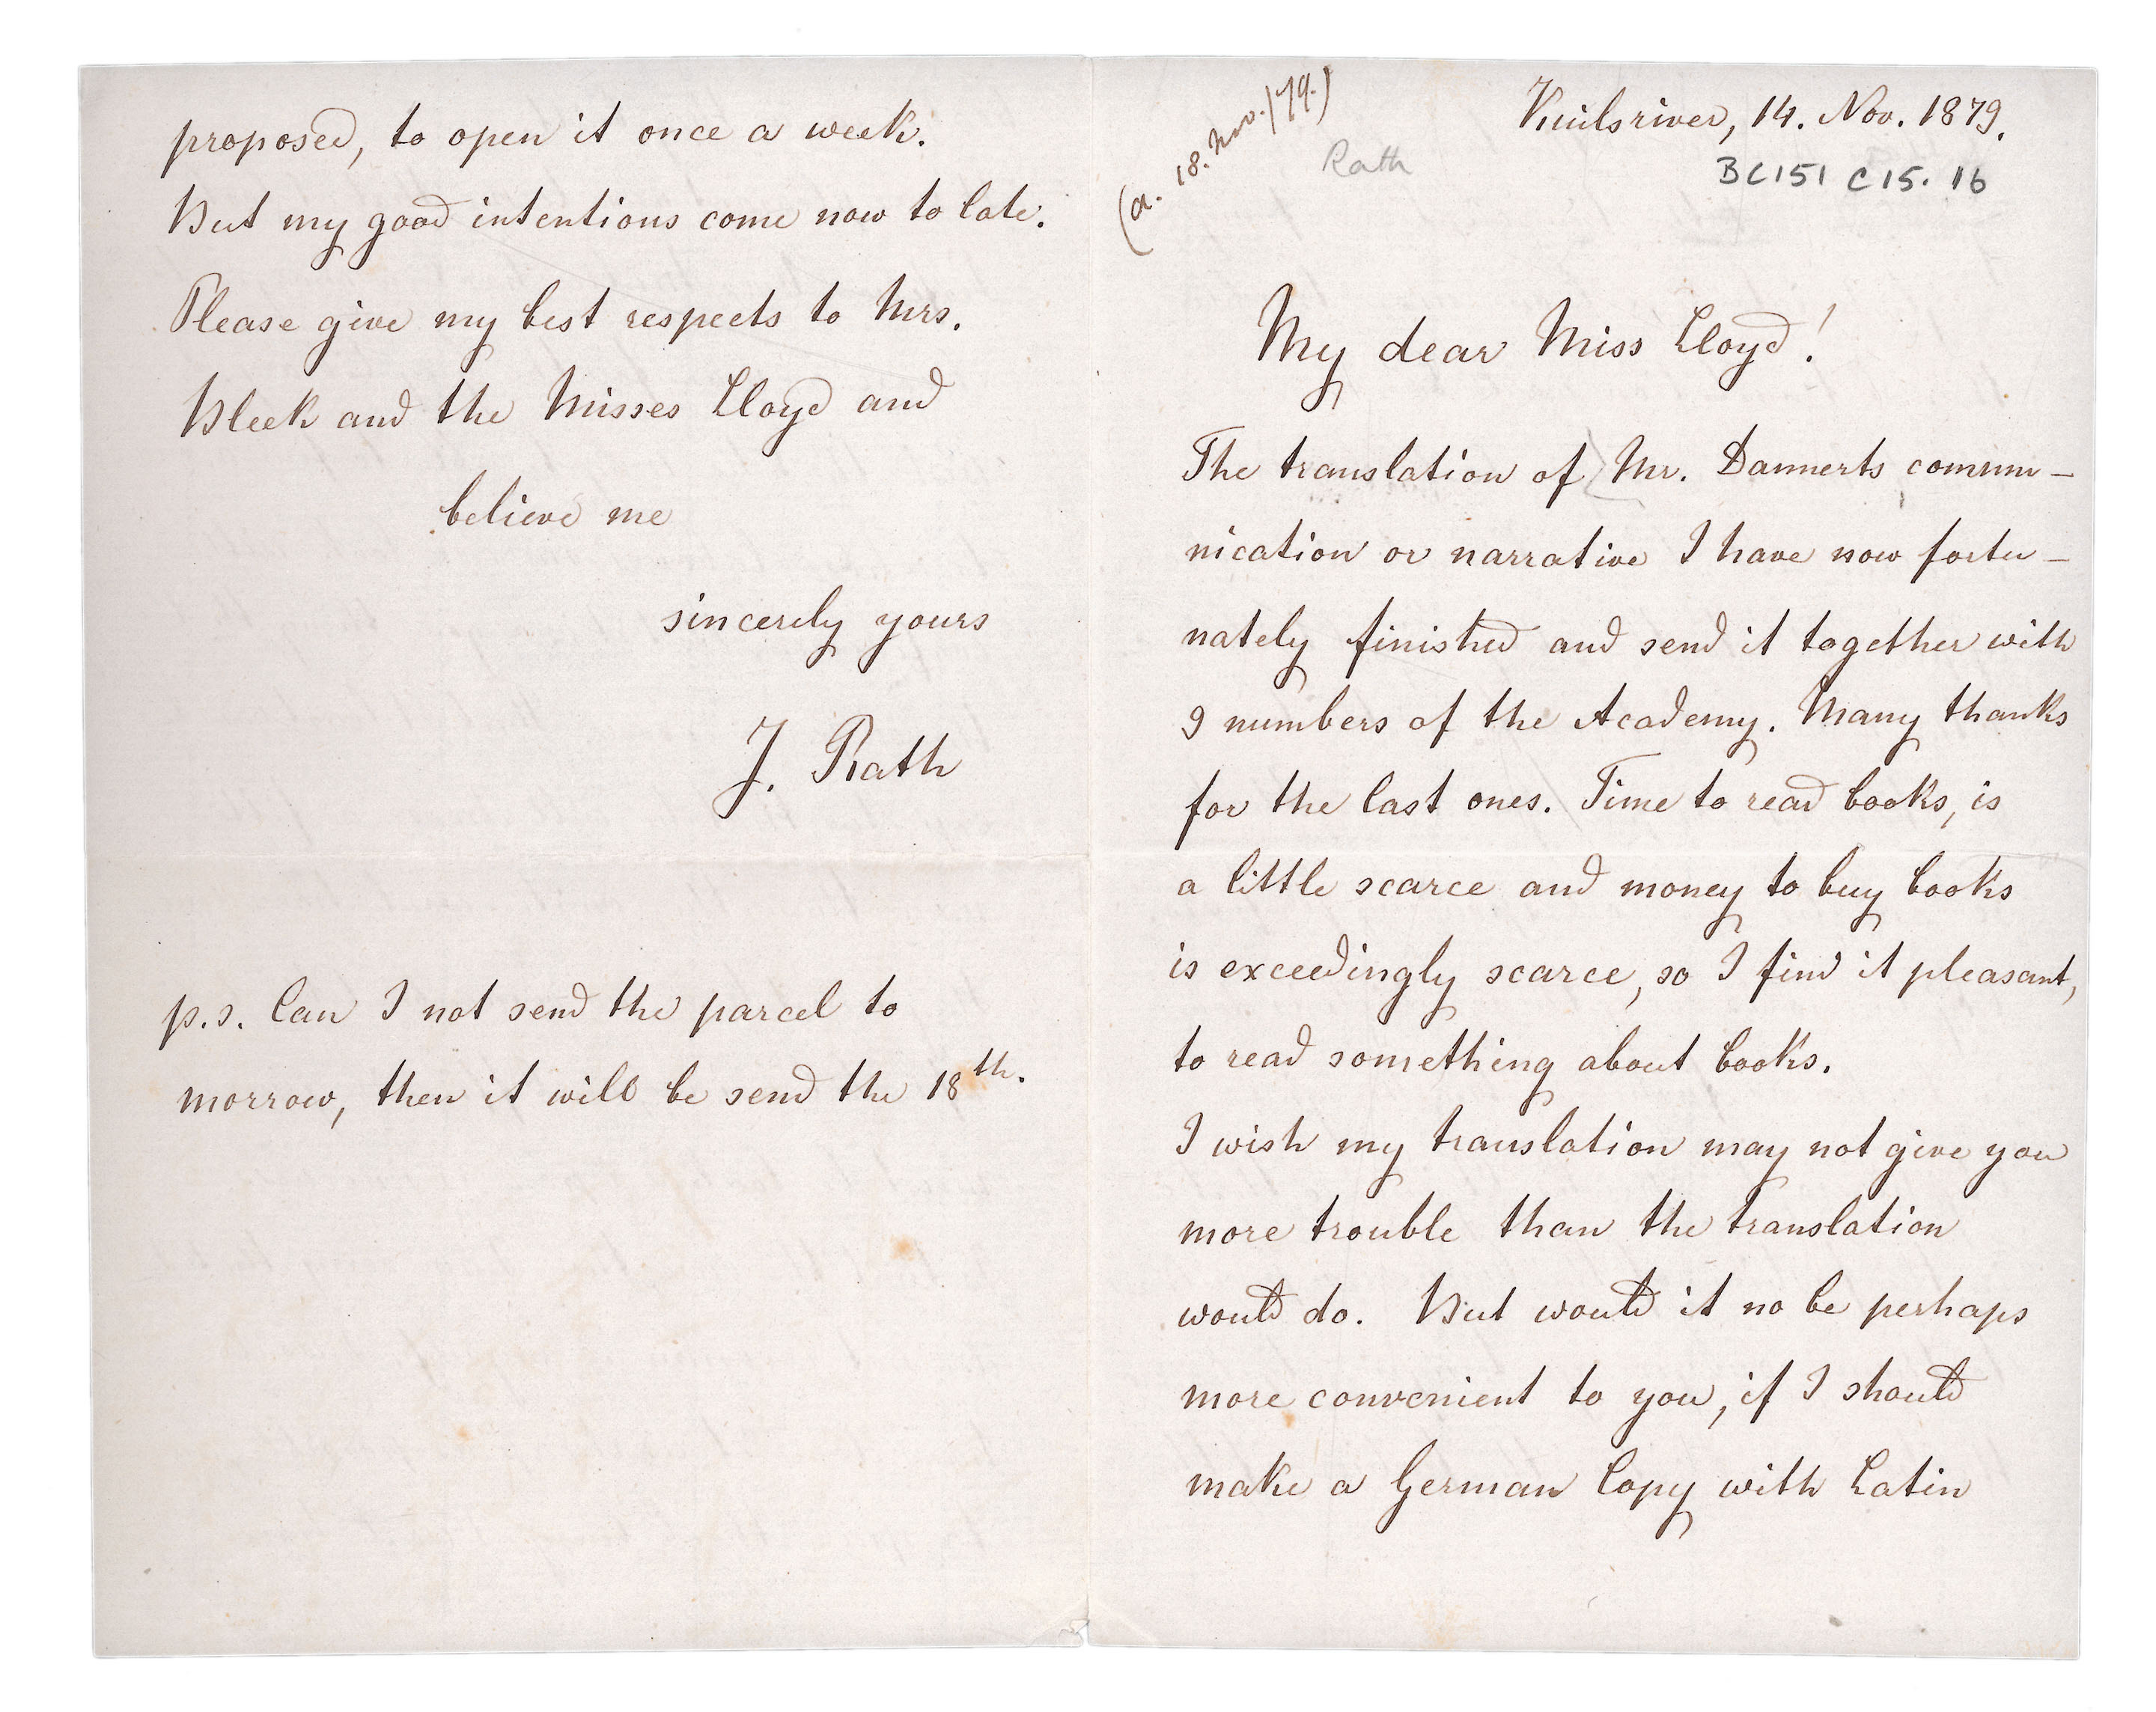 (a. 18. Nov./79.)
Rath
Kuilsriver, 14. Nov. 1879.
BC151 C15. 16
My dear Miss Lloyd!
The translation of Mr. Dannerts commu-
nication or narrative I have now fortu-
nately finished and send it together with
9 numbers of the Academy. Many thanks
for the last ones. Time to read books, is
a little scarce and money to buy books
is exceedingly scarce, so I find it pleasant,
to read something about books.
I wish my translation may not give you
more trouble than the translation
would do. But would it no be perhaps
more convenient to you, if I should
make a German Copy with Latin
proposed, to open it once a week.
But my good intentions come now to late.
Please give my best respects to Mrs.
Bleek and the Misses Lloyd and
believe me
sincerely yours
J. Rath
p.s. Can I not send the parcel to
morrow, then it will be send the 18th.